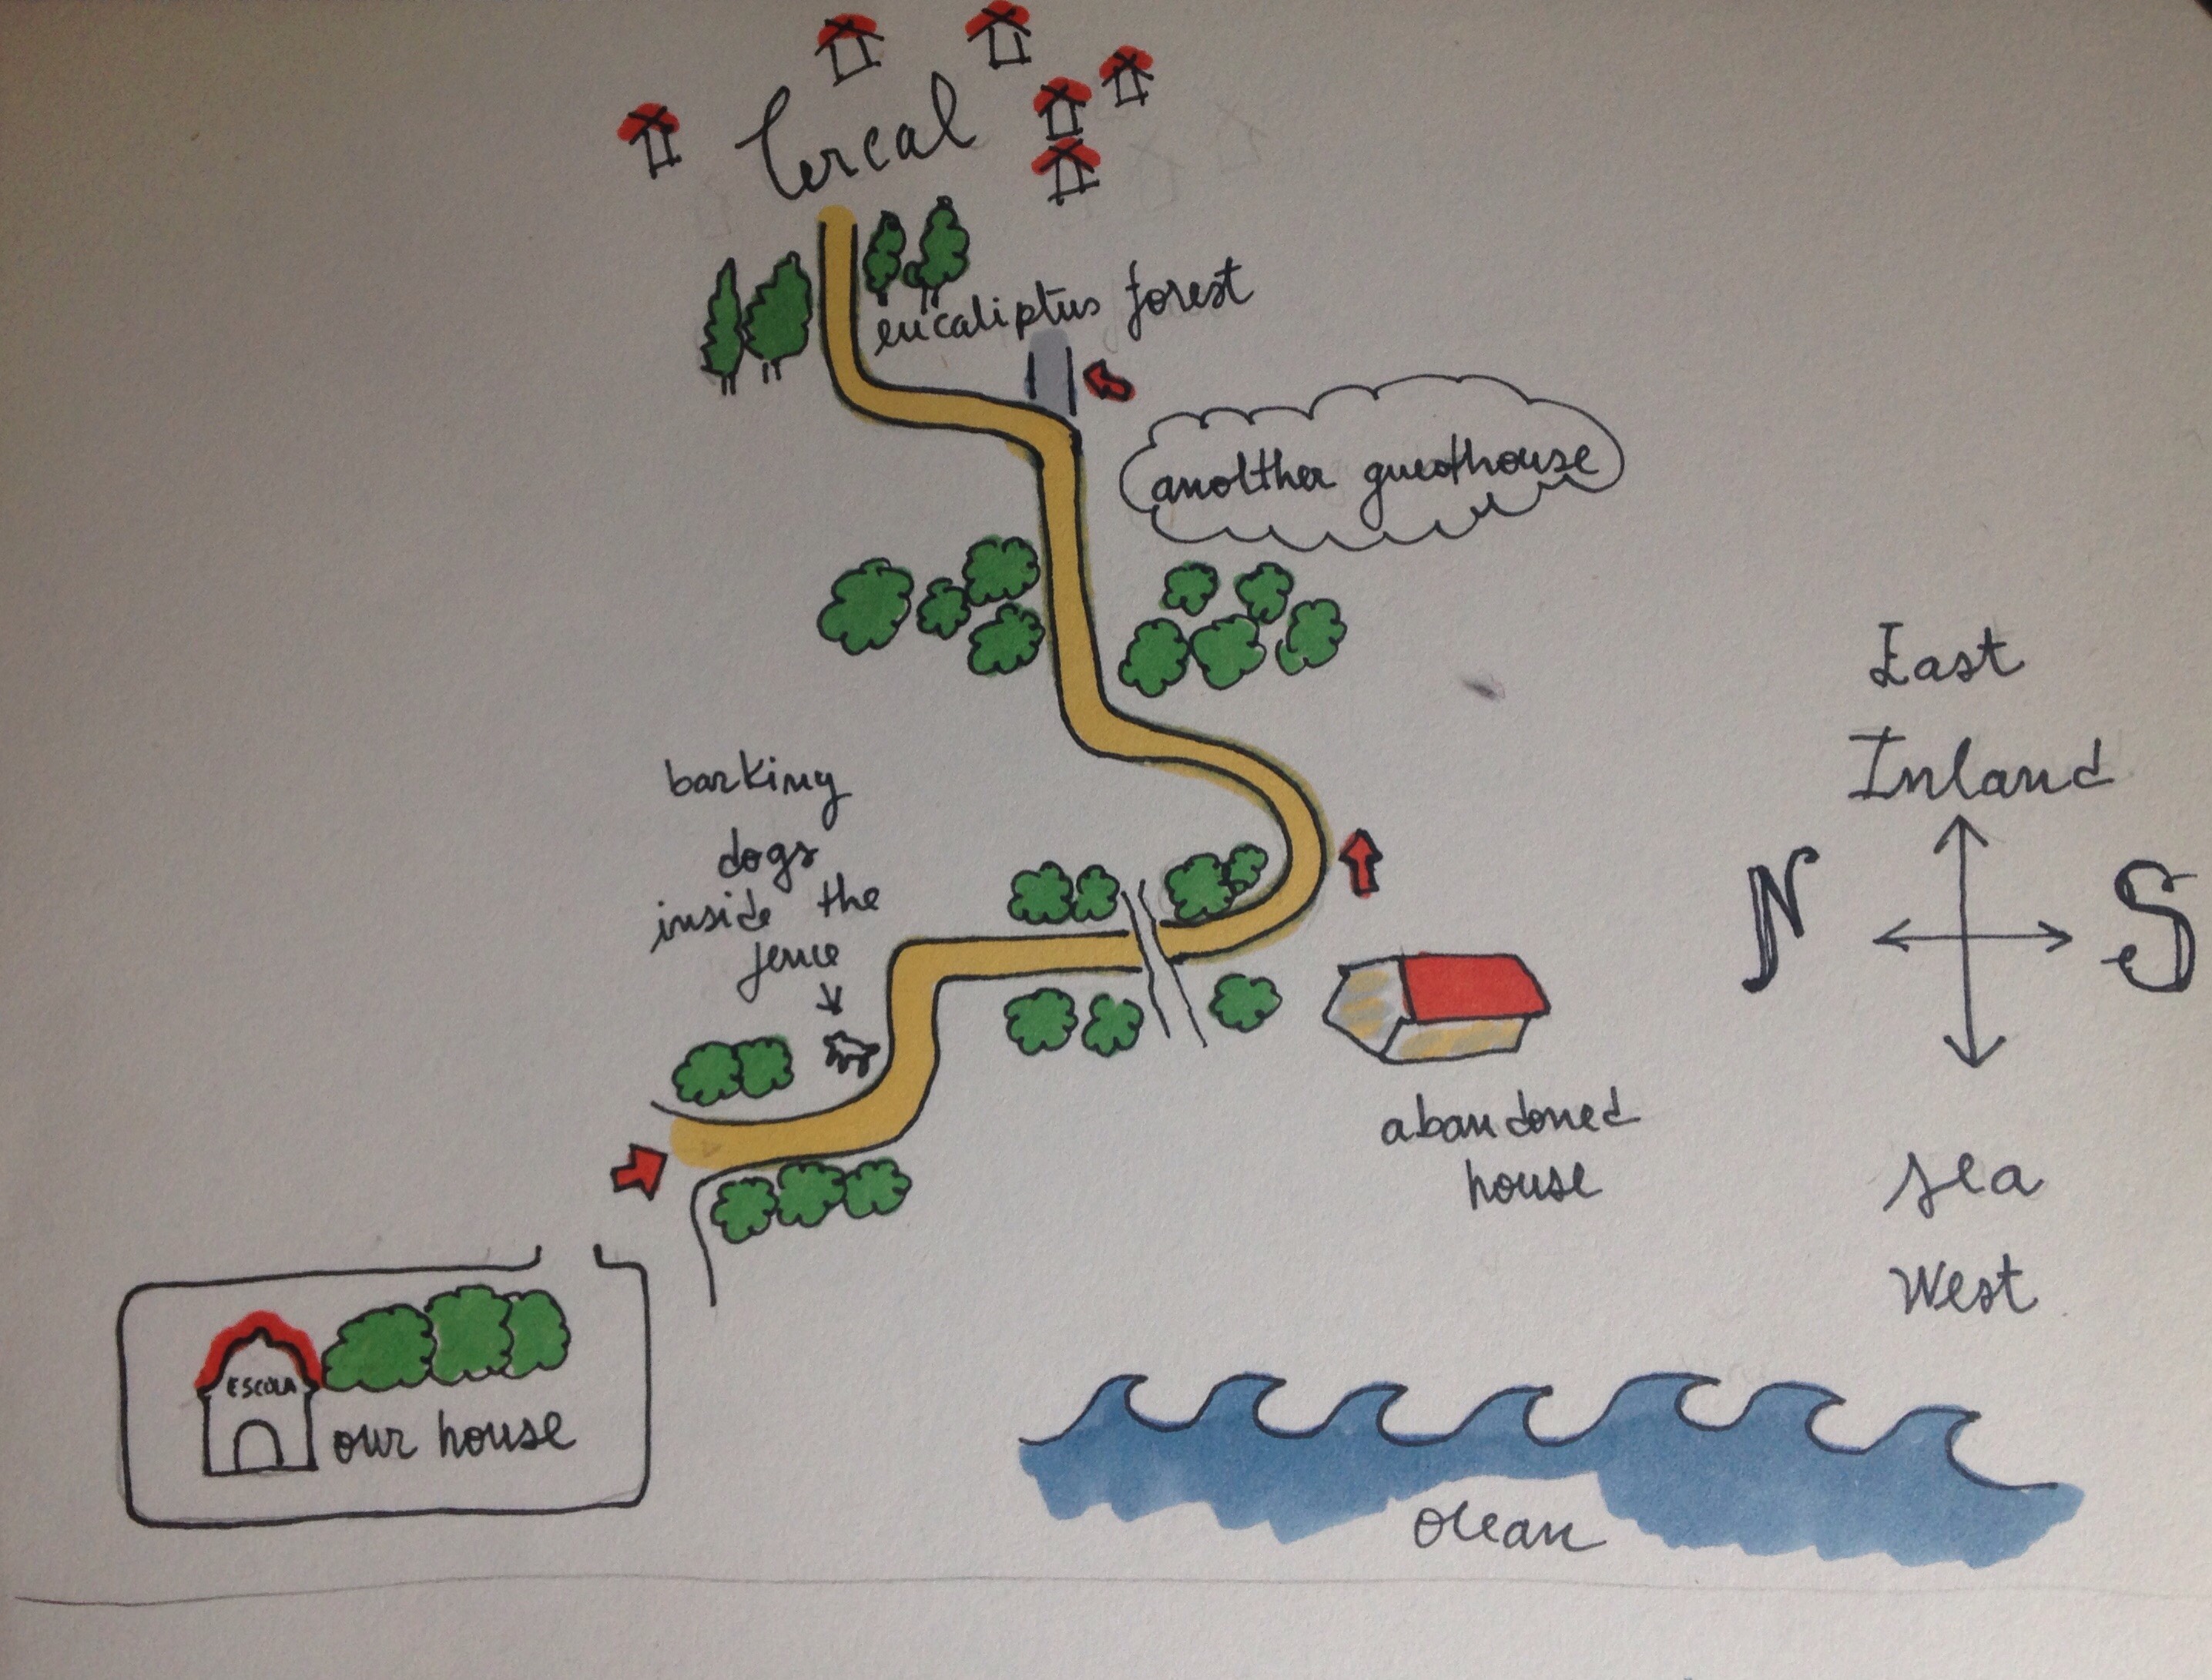 Cercal
eucaliptus forest
anolther guesthouse
East
Inland
N
S
sea
West
barking
dogs
inside the
fence
abandoned
house
ESCOLA
our house
Ocean